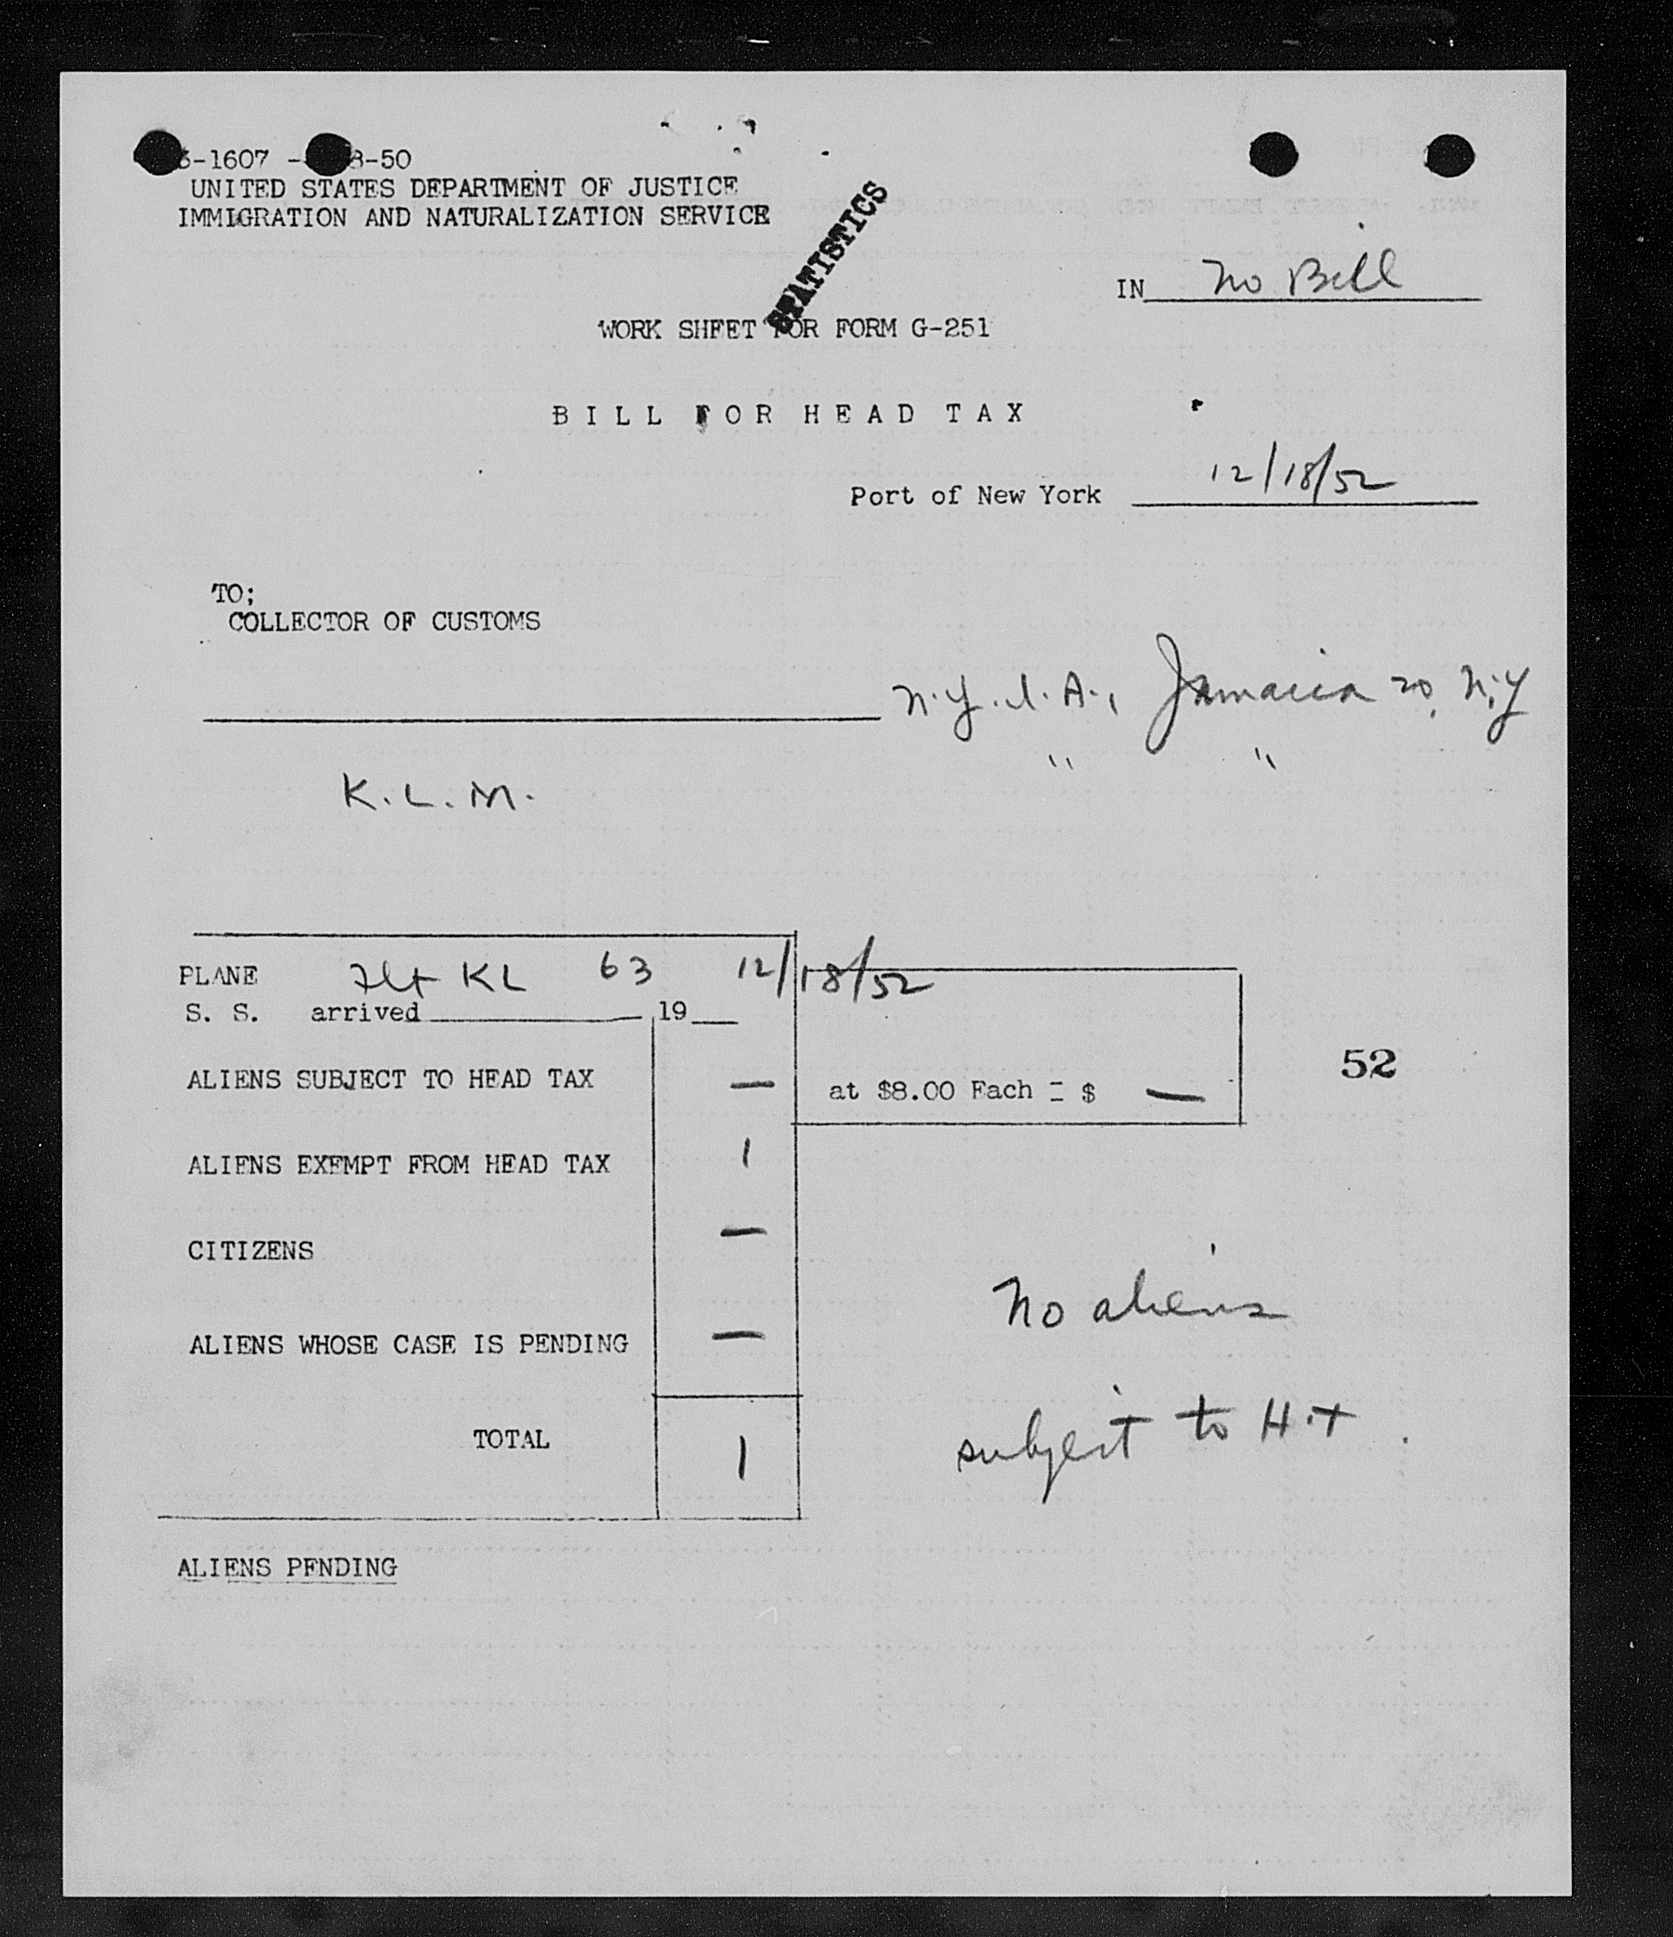 6-1607 - 8-50
UNITED STATES DEPARTMENT OF JUSTICE
IMMIGRATION AND NATURALIZATION SERVICE
STATISTICS
IN No Bill
WORK SHEET FOR FORM G-251
BILL FOR HEAD TAX
Port of New York 12/18/52
TO;
COLLECTOR OF CUSTOMS
N.Y.I.A., Jamaica 20, N.Y
" "
K.L.M.
PLANE Flt KL 63 12/18/52
S. S. arrived 19
ALIENS SUBJECT TO HEAD TAX — at $8.00 Each = $ —
52
ALIENS EXEMPT FROM HEAD TAX 1
CITIZENS —
No aliens
ALIENS WHOSE CASE IS PENDING —
subject to H.T.
TOTAL 1
ALIENS PENDING